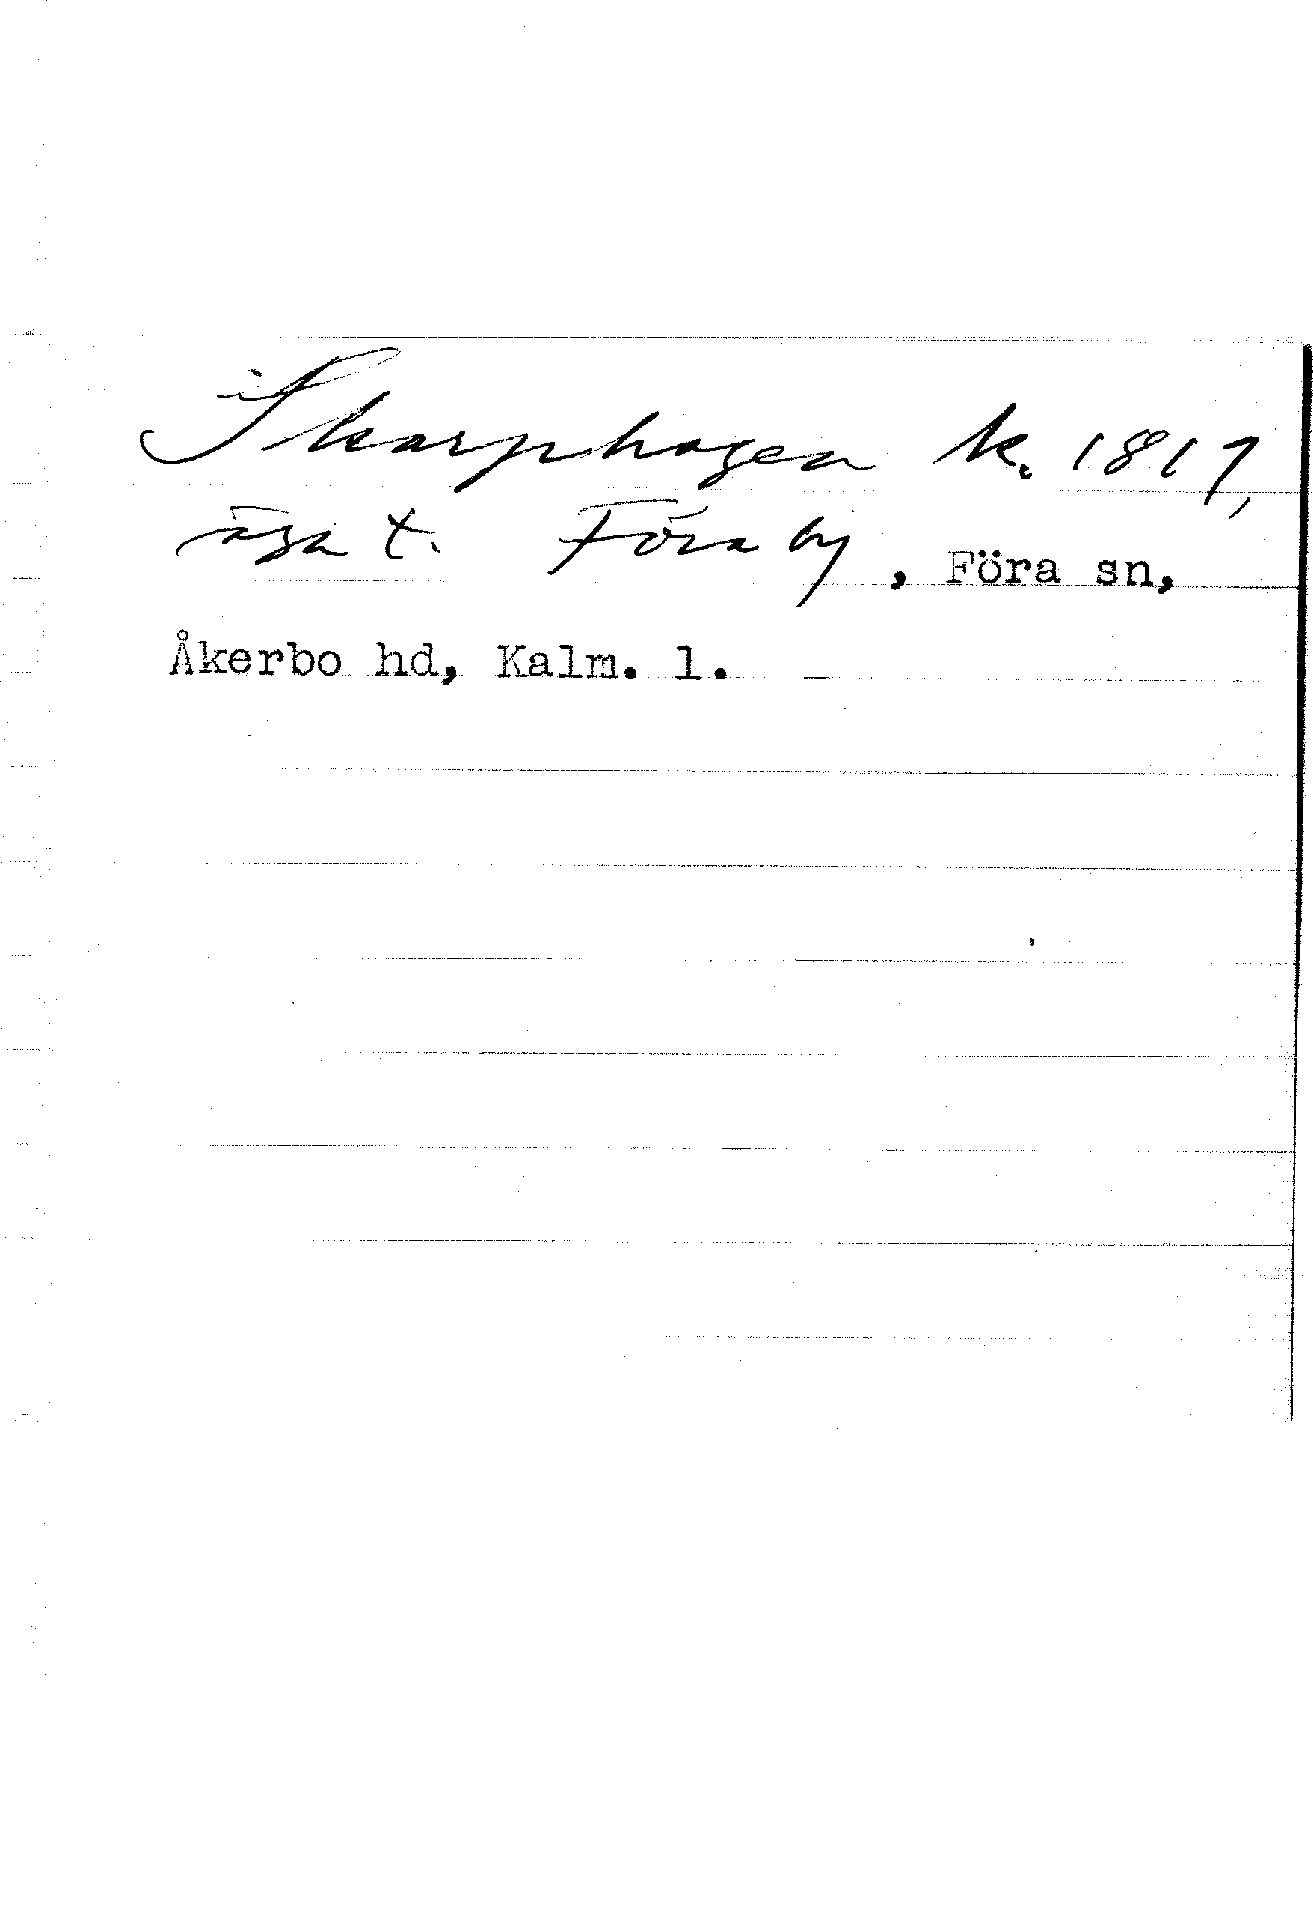 Skarphagen k. 1817,
äga t. Föra by, Föra sn,
Åkerbo hd, Kalm. l.